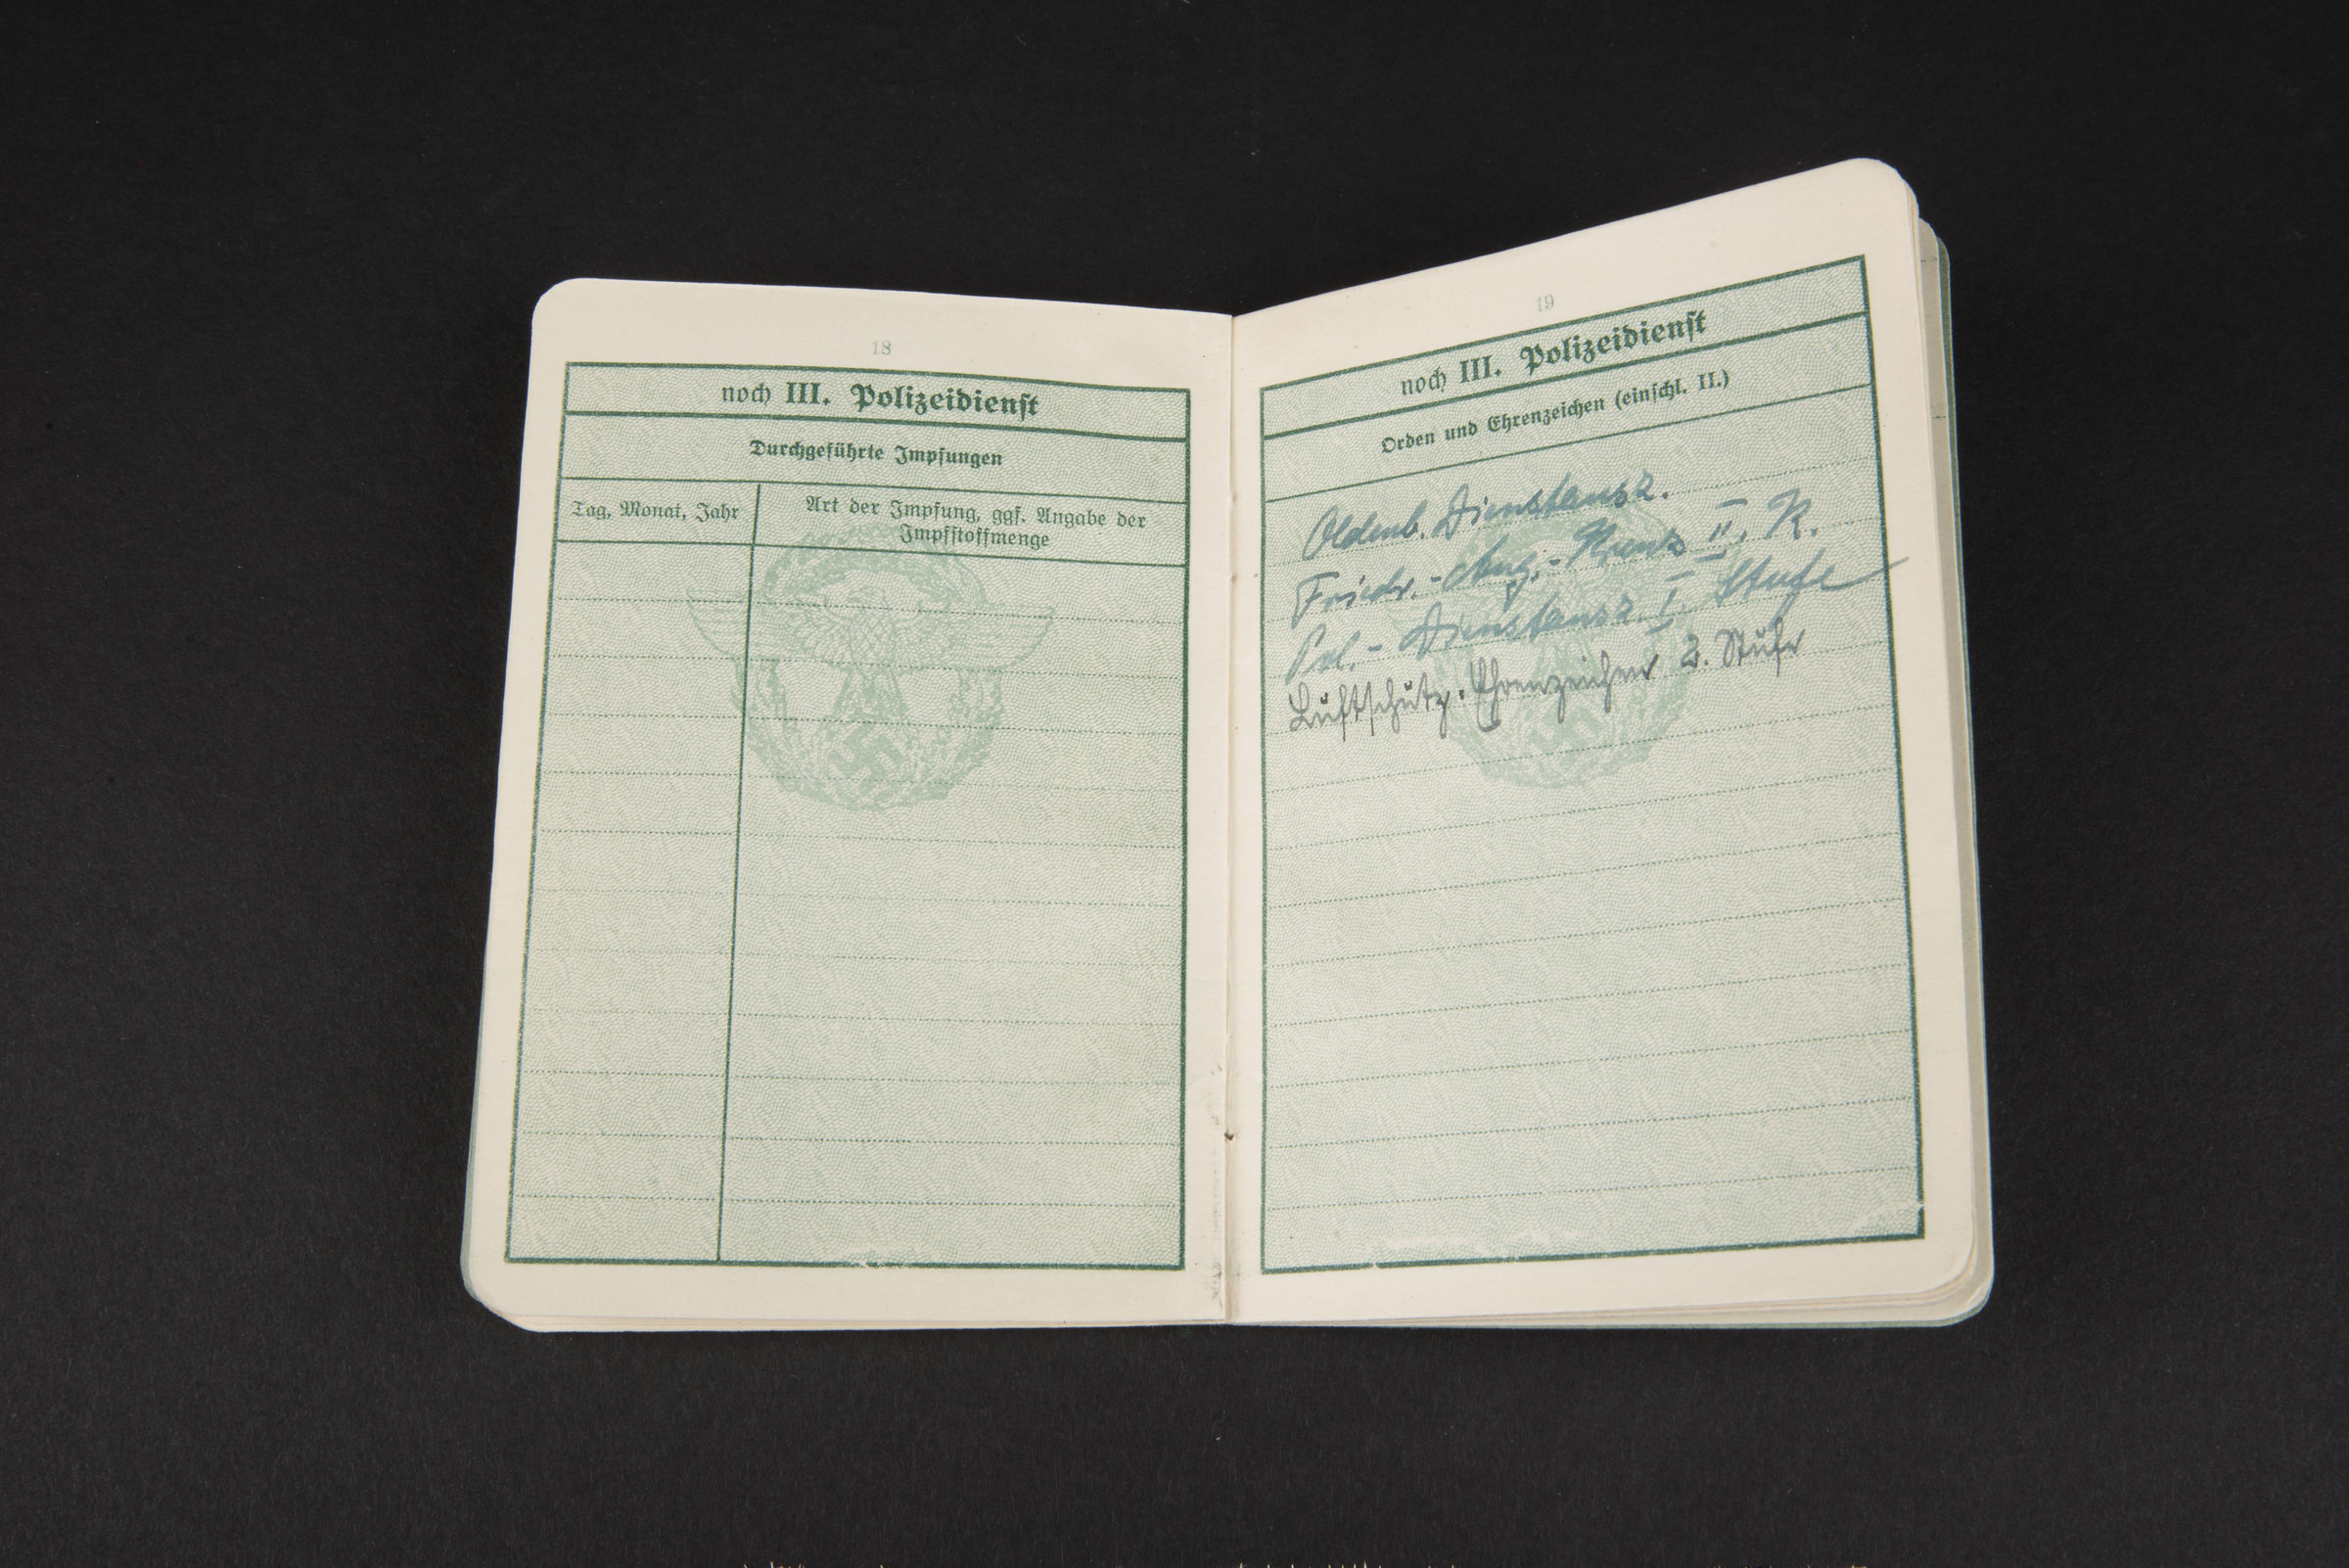 18
noch III. Polizeidienst
Durchgeführte Impfungen
Tag, Monat, Jahr
Art der Impfung, ggf. Angabe der
Impfstoffmenge
19
noch III. Polizeidienst
Orden und Ehrenzeichen (einschl. II.)
Oldenb. Dienstausz.
Friedr.-Aug.-Kreuz II. K.
Pol.-Dienstausz. I. Stufe
Luftschutz-Ehrenzeichen 2. Stufe